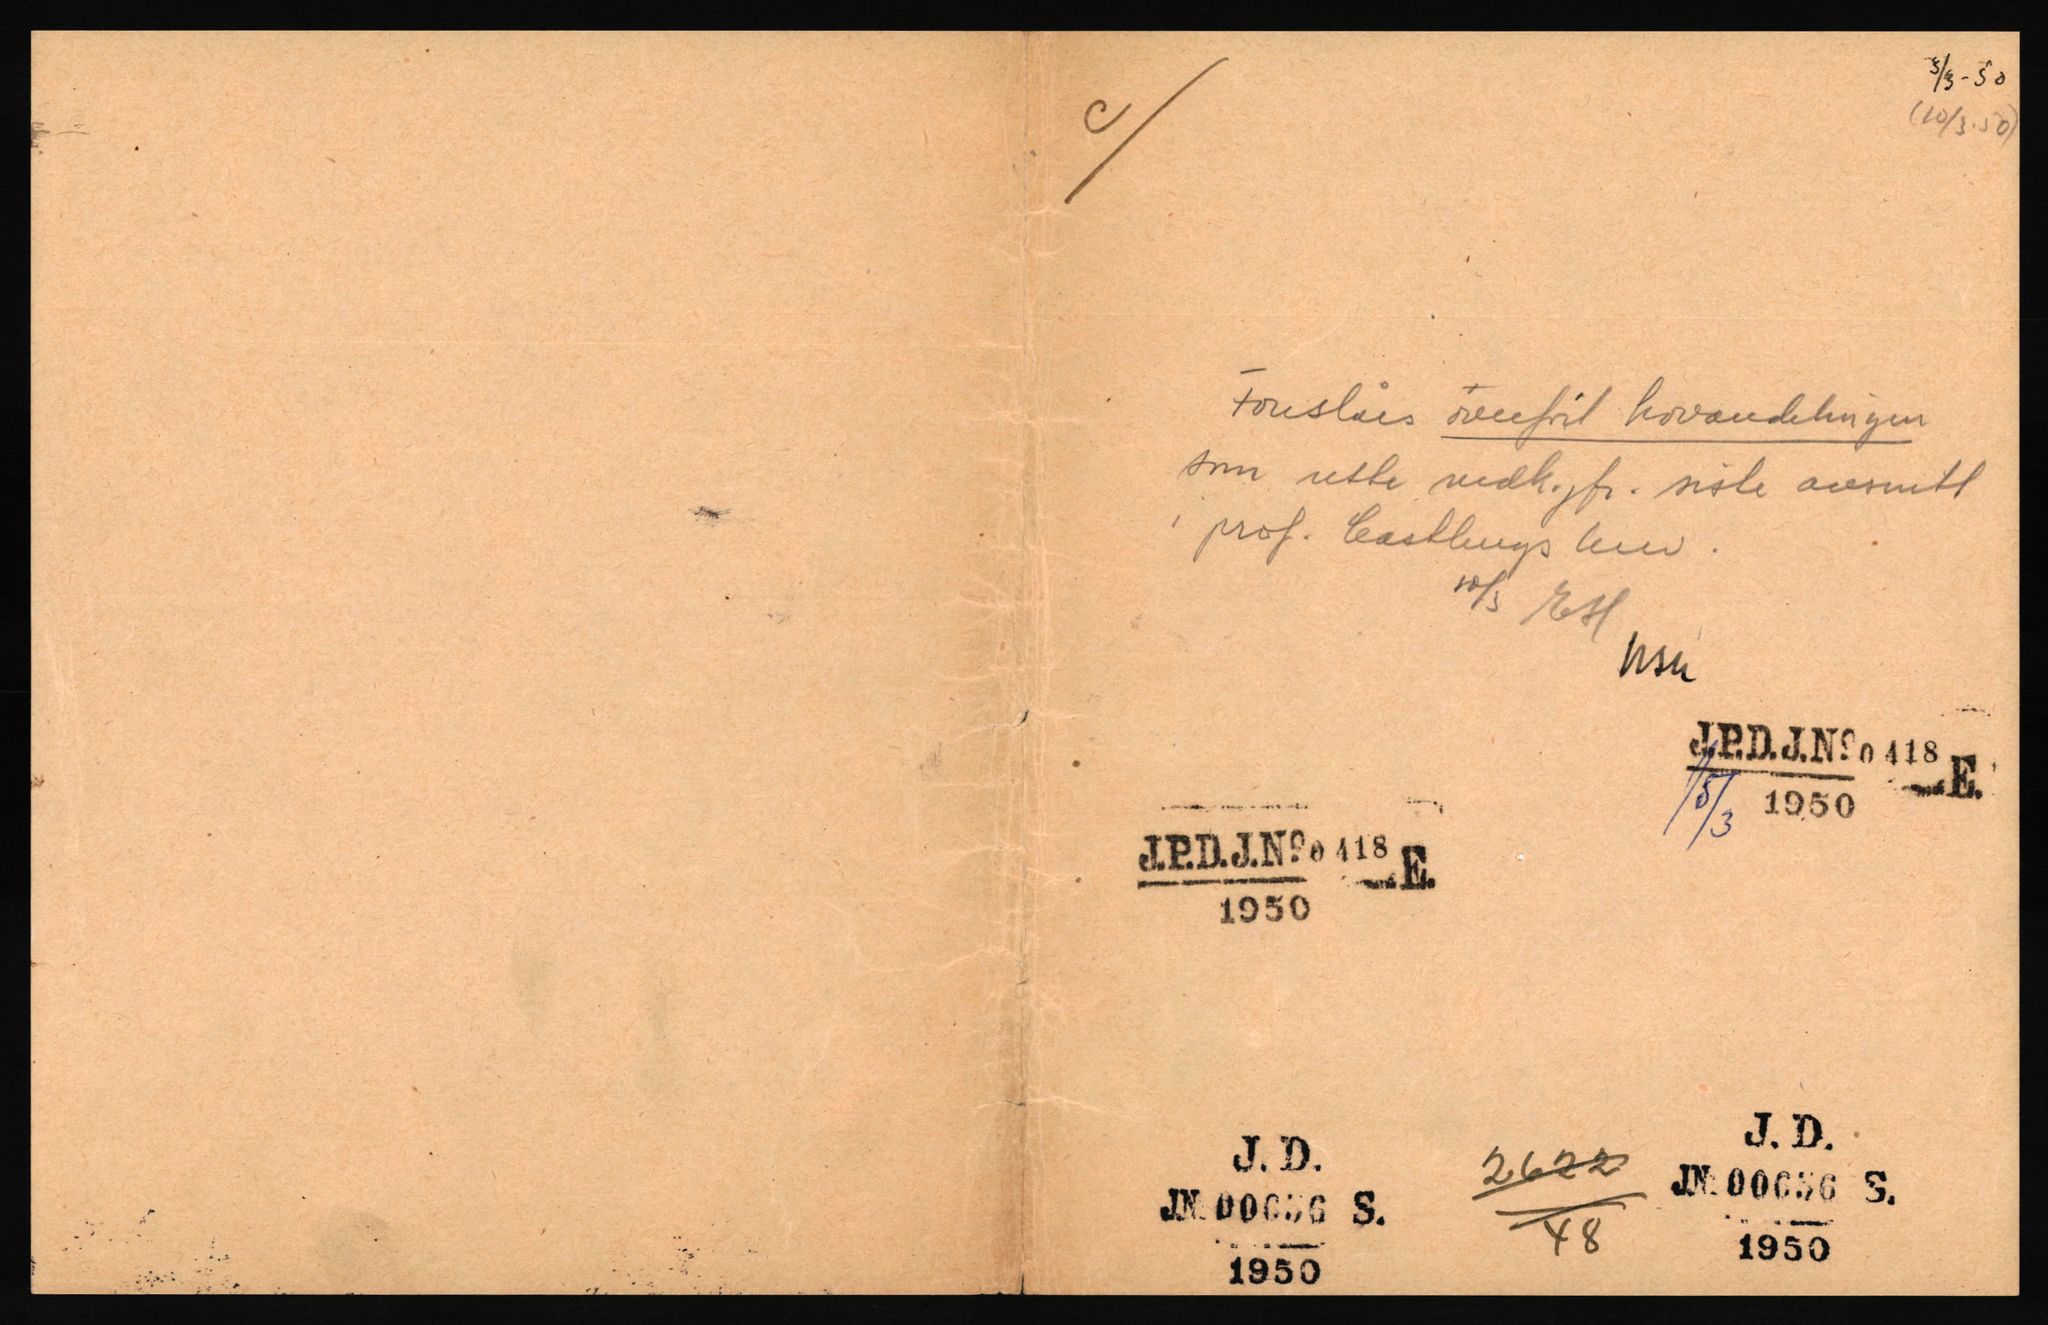 C/
3/3-50
(10/3.50)
Foreslåes översöt lovavdelingen
som rette vedk. jfr. siste avsnitt
i prof. Castbergs brev.
10/3 ESH
J.P.D.J.Nº 0418 E.
1950
15/3
J.P.D.J.Nº 0418 E.
1950
J. D.
JN: 00656 S.
1950
2622
48
J. D.
JN: 00656 S.
1950